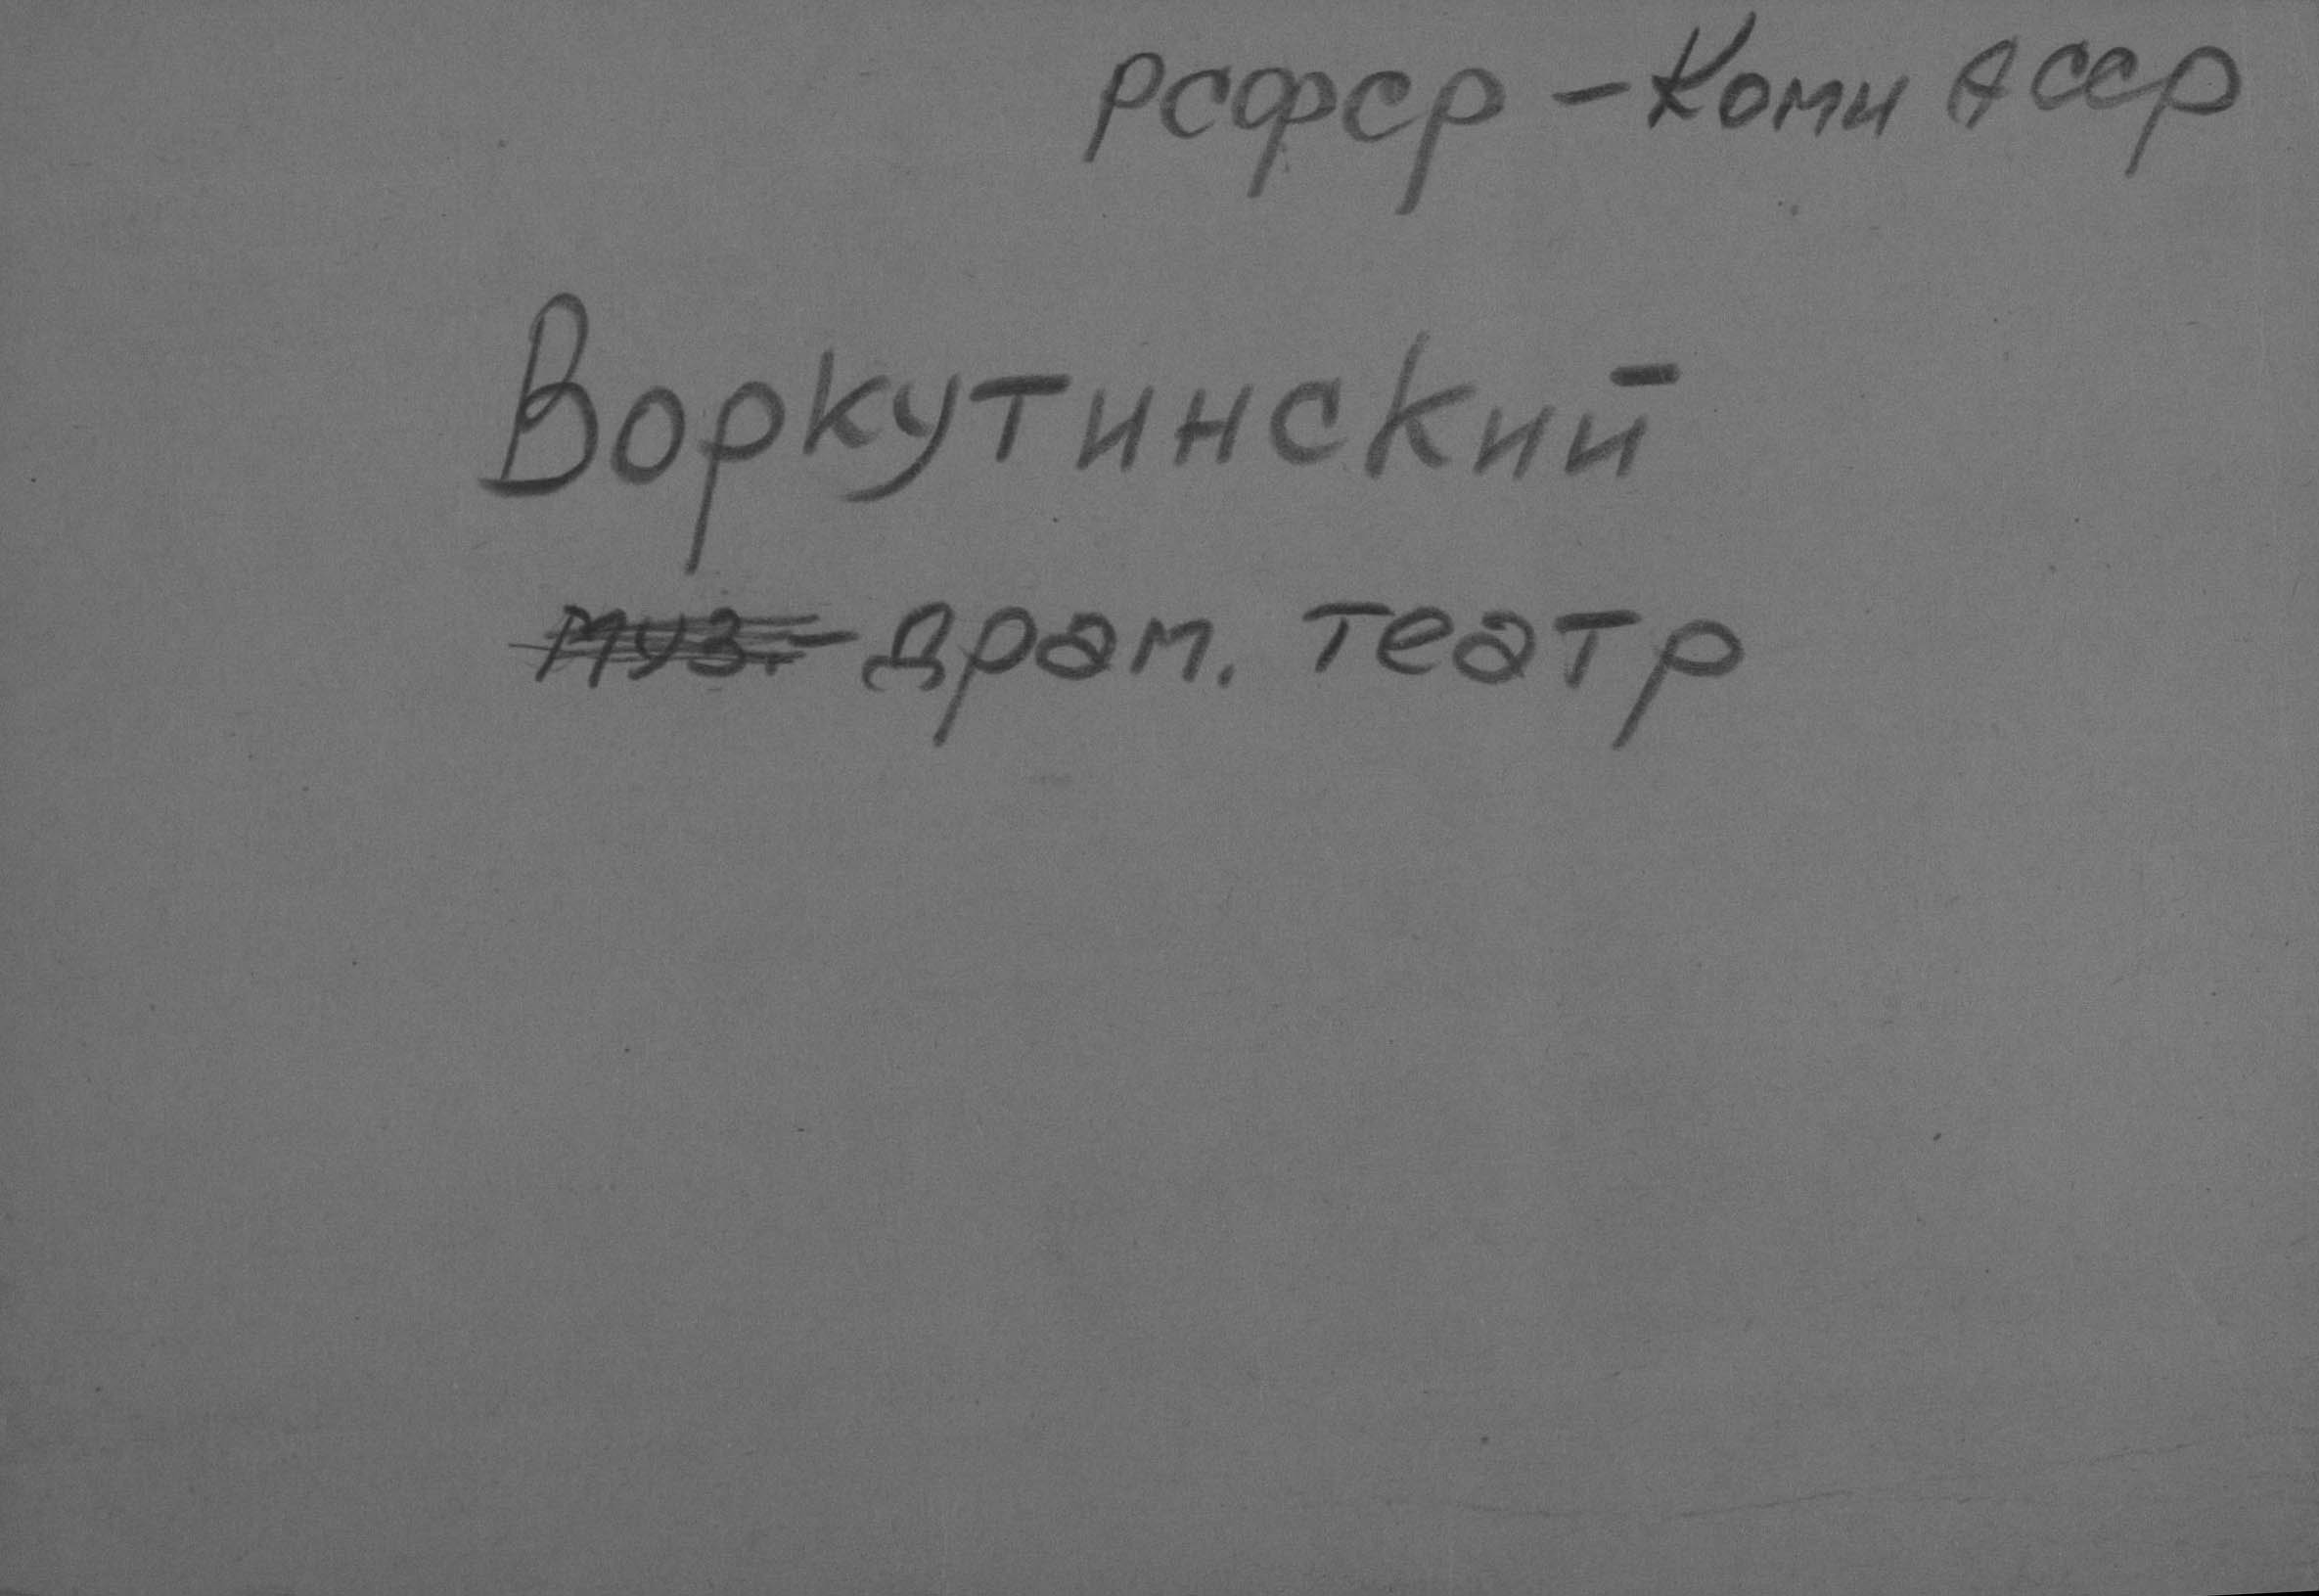 РСФСР – Коми АССР
Воркутинский
муз.- драм. театр